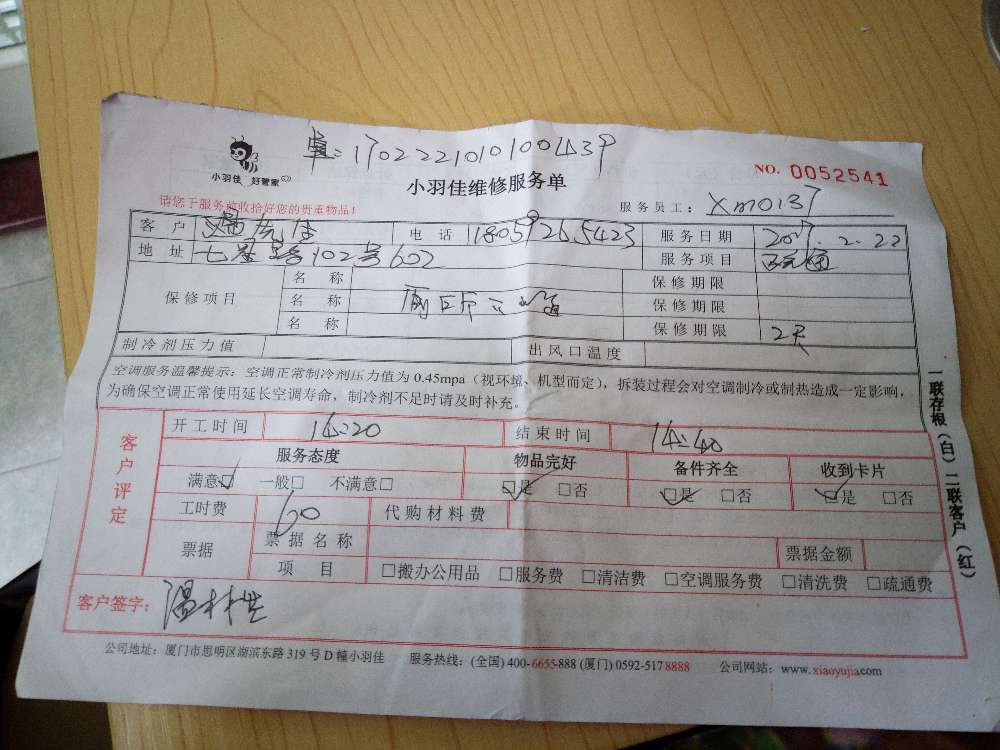 单：1702221010100439
小羽佳 好管家
小羽佳维修服务单
NO. 0052541
请您于服务前收拾好您的贵重物品！
服务员工：XM0137
客 户 电 话 18059265423 服务日期 2017.2.22
地 址 七星路102号602 服务项目 疏通
保修项目 名 称 保修期限
名 称 厕所 疏通 保修期限
名 称 保修期限 2天
制冷剂压力值 出风口温度
空调服务温馨提示：空调正常制冷剂压力值为 0.45mpa（视环境、机型而定），拆装过程会对空调制冷或制热造成一定影响，
为确保空调正常使用延长空调寿命，制冷剂不足时请及时补充。
客户评定
开工时间 14:20 结束时间 14:40
服务态度 物品完好 备件齐全 收到卡片
满意☑ 一般□ 不满意□ ☑是 □否 ☑是 □否 ☑是 □否
工时费 60 代购材料费
票据 票据名称 票据金额
项 目 □搬办公用品 □服务费 □清洁费 □空调服务费 □清洗费 □疏通费
客户签字：
一联存根（白）二联客户（红）
公司地址：厦门市思明区湖滨东路 319 号 D 幢小羽佳 服务热线：(全国) 400-6655-888 (厦门) 0592-517 8888 公司网站：www.xiaoyujia.com